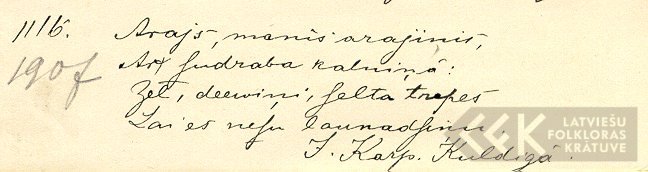 1116. Arajs, manis arajinis,
1907 Ar ſudraba kalniņâ:
Zel, deewiņi, ſelta trepes
Lai es neſu launadſiņu.
J. Karp. Kuldigâ.
LATVIEŠU
FOLKLORAS
KRĀTUVE